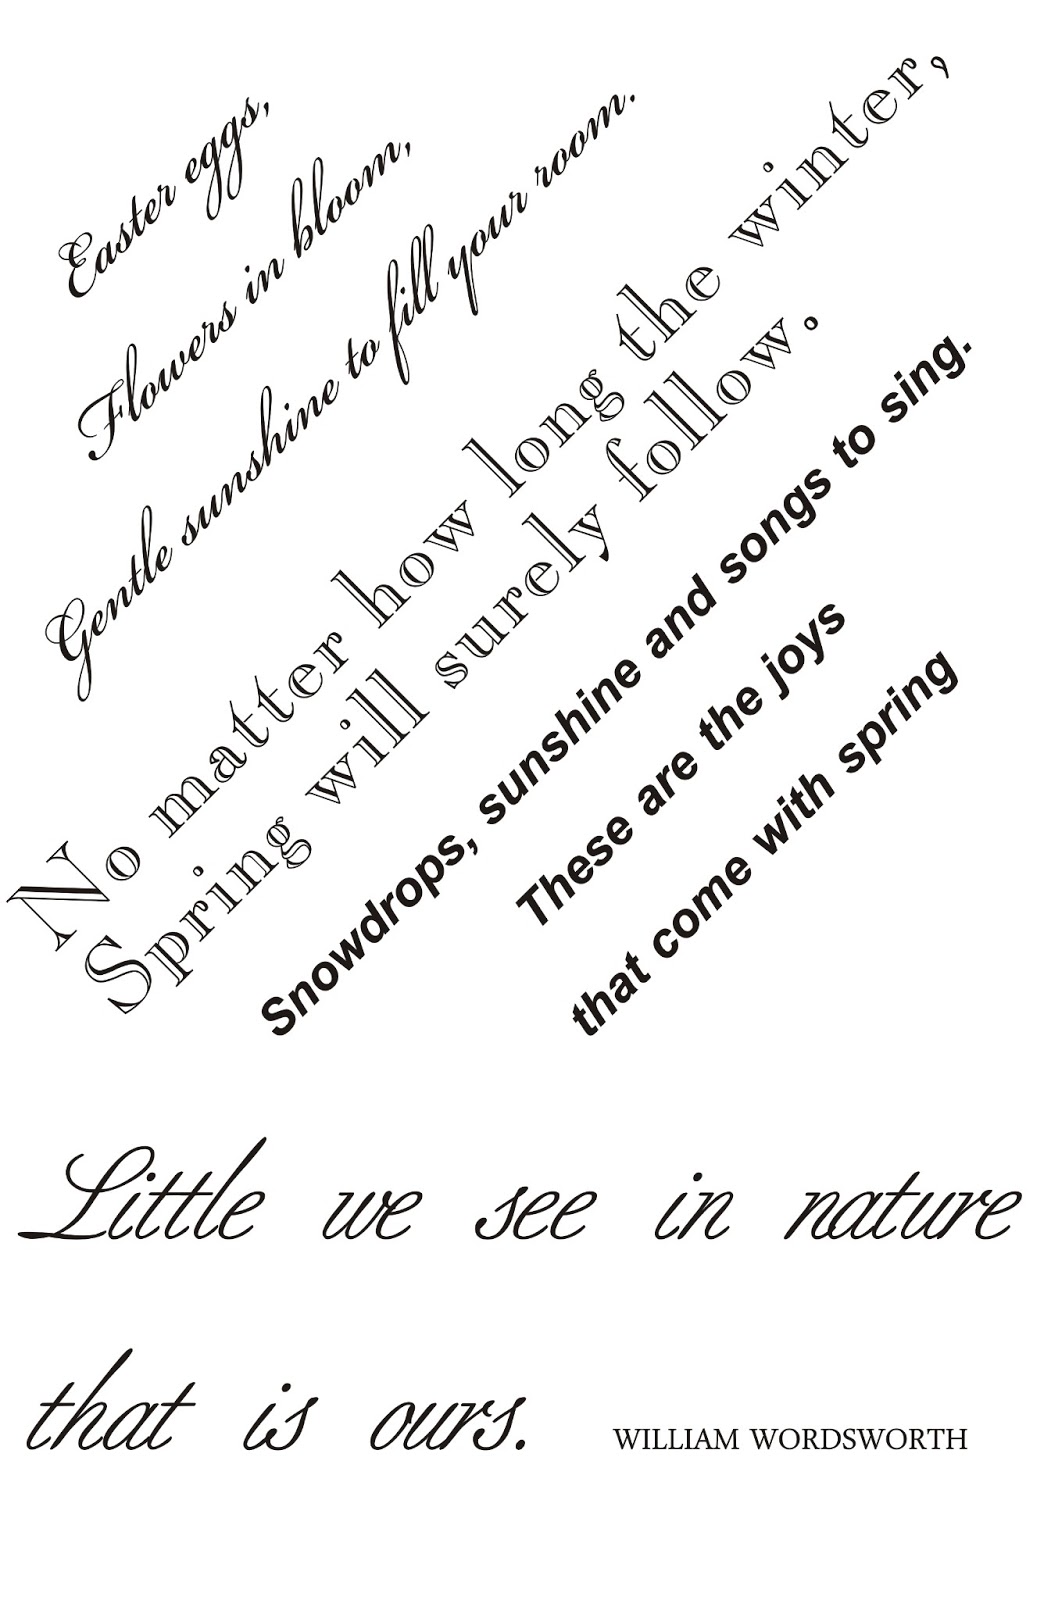 Easter eggs,
Flowers in bloom,
Gentle sunshine to fill your room.
No matter how long the winter,
Spring will surely follow.
Snowdrops, sunshine and songs to sing.
These are the joys
that come with spring
Little we see in nature
that is ours. WILLIAM WORDSWORTH